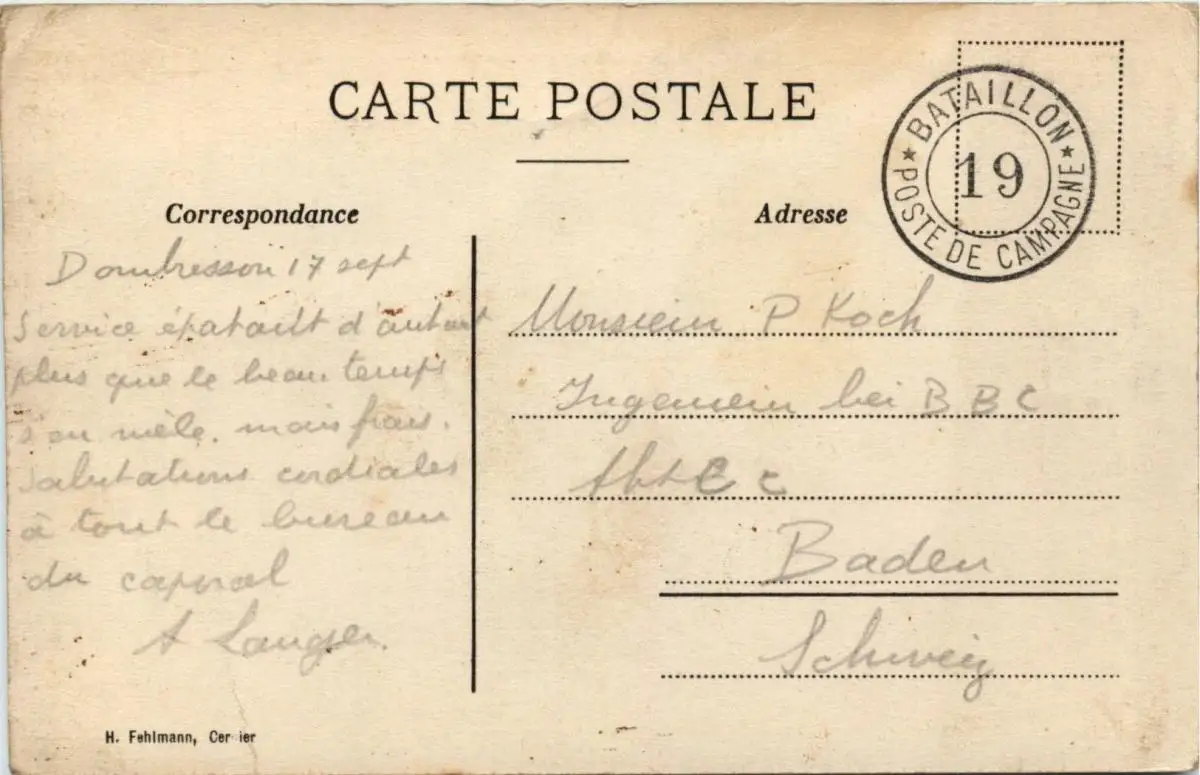 CARTE POSTALE
BATAILLON
19
POSTE DE CAMPAGNE
Correspondance
Dombresson 17 sept
Service épatant d'autant
plus que le beau temps
s'en mèle. mais frais.
Salutations cordiales
à tout le bureau
du caporal
A
Adresse
Monsieur P Koch
Ingenieur bei B B C
Abt C c
Baden
Schweiz
H. Fehlmann, Cernier